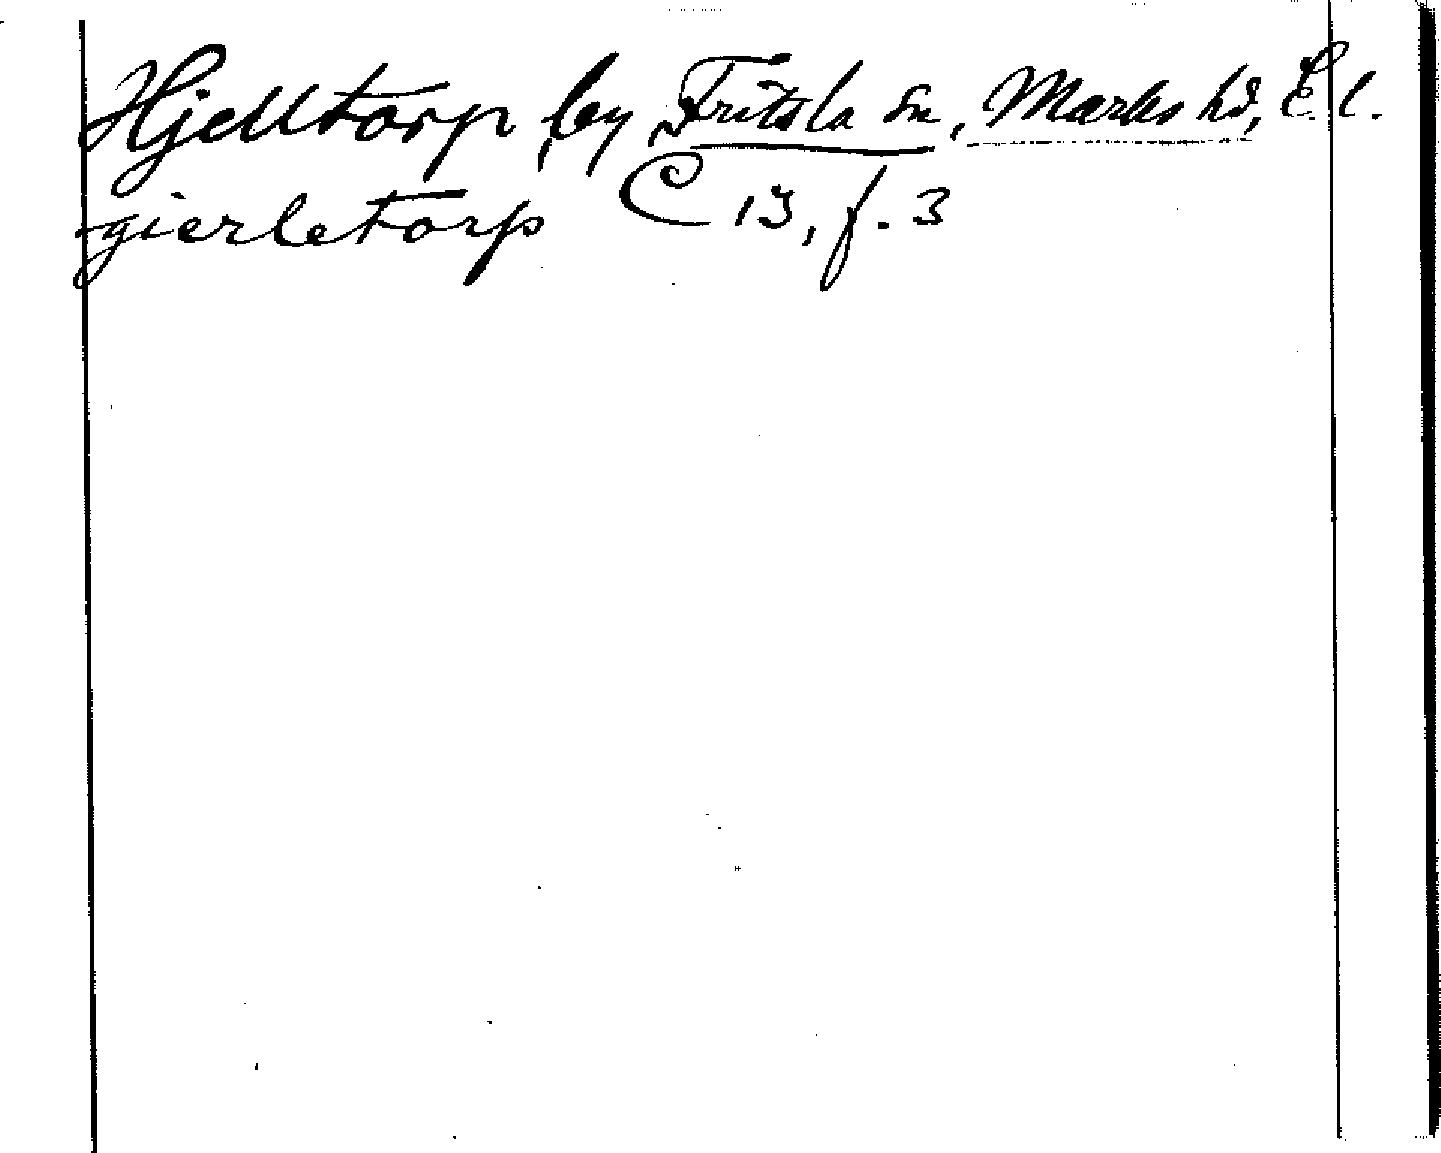 Hjälltorp, by, Fritsla sn, Marks hd, E. l.
gierletorp C 13, f. 3